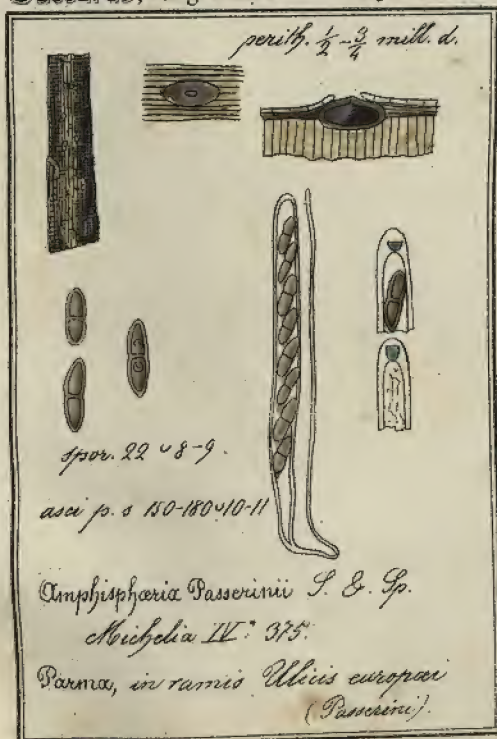 perith. ½ - ¾ mill. d.
spor. 22 ∪ 8-9.
asci p. s 150-180 ∪ 10-11
Amphisphæria Passerinii S. & Sp.
Michelia IV: 375.
Parma, in ramis Ulicis europæi
(Passerini).